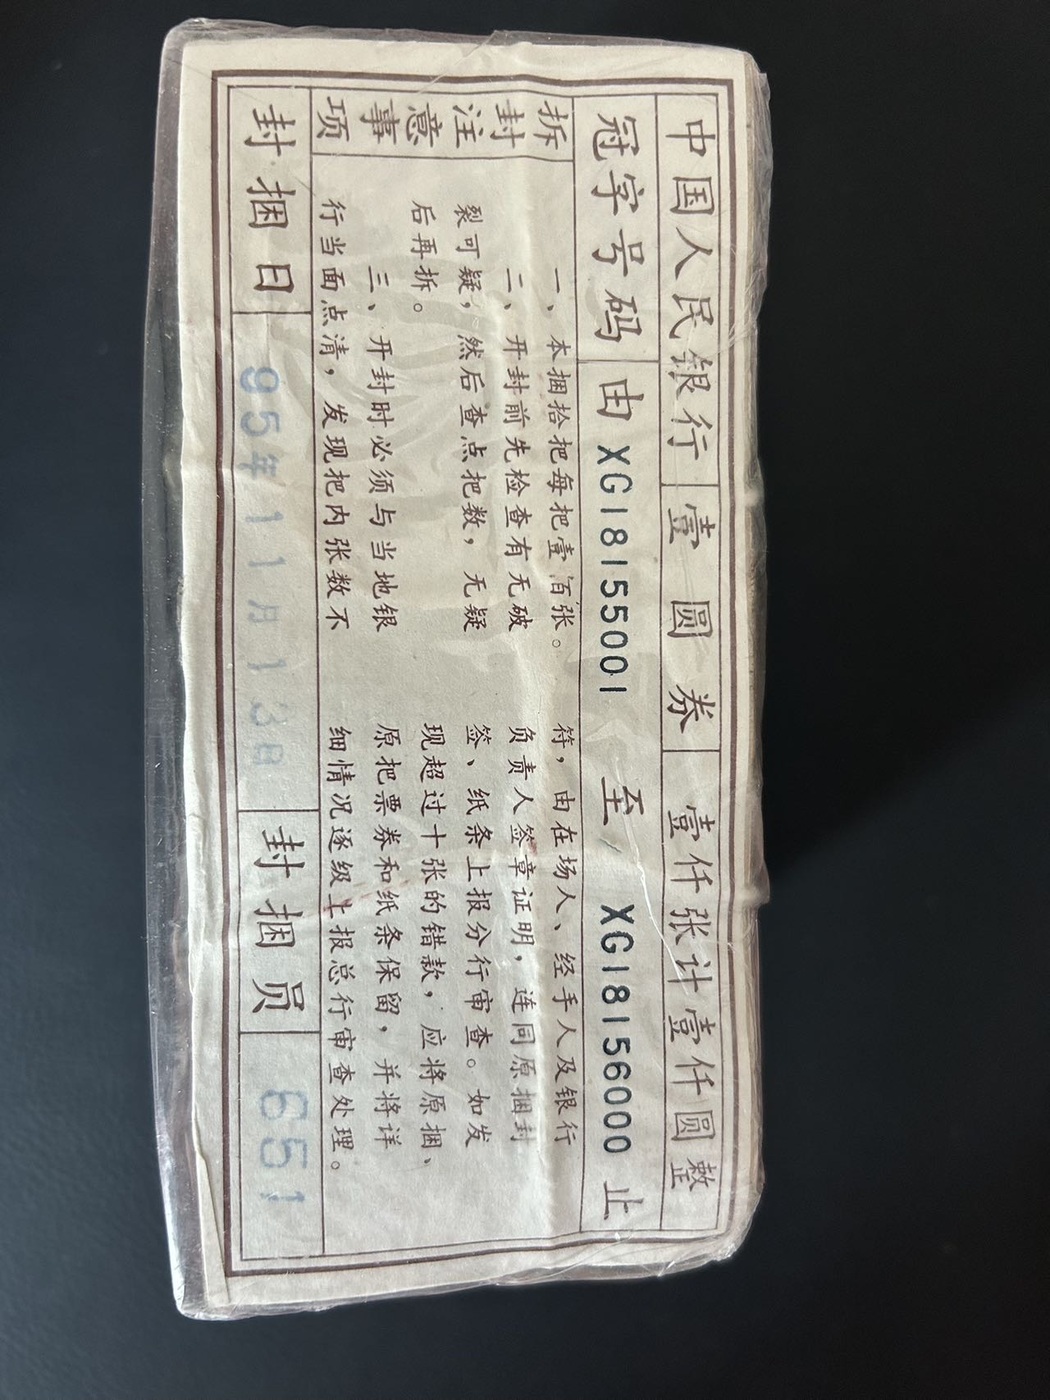 中国人民银行 壹圆券 壹仟张计壹仟圆整
冠字号码 由 XG18155001 至 XG18156000 止
拆封注意事项
一、本捆拾把每把壹佰张。
二、开封前先检查有无破
裂可疑，然后查点把数，无疑
后再拆。
三、开封时必须与当地银
行当面点清，发现把内张数不
符，由在场人、经手人及银行
负责人签章证明，连同原捆封
签、纸条上报分行审查。如发
现超过十张的错款，应将原捆、
原把票券和纸条保留，并将详
细情况逐级上报总行审查处理。
封捆日 95年11月13日 封捆员 651